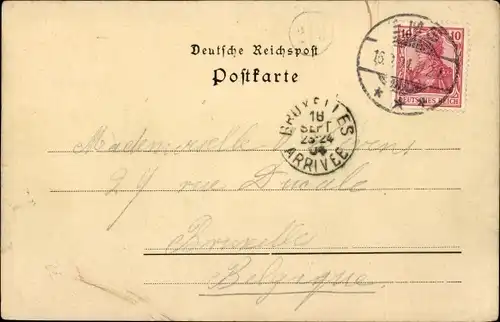 Deutsche Reichspost
Postkarte
10 10
DEUTSCHES REICH
BRUXELLES
16
SEPT
23-24
04
ARRIVEE
Mademoiselle
27 rue Ducale
Bruxelle
Belgique